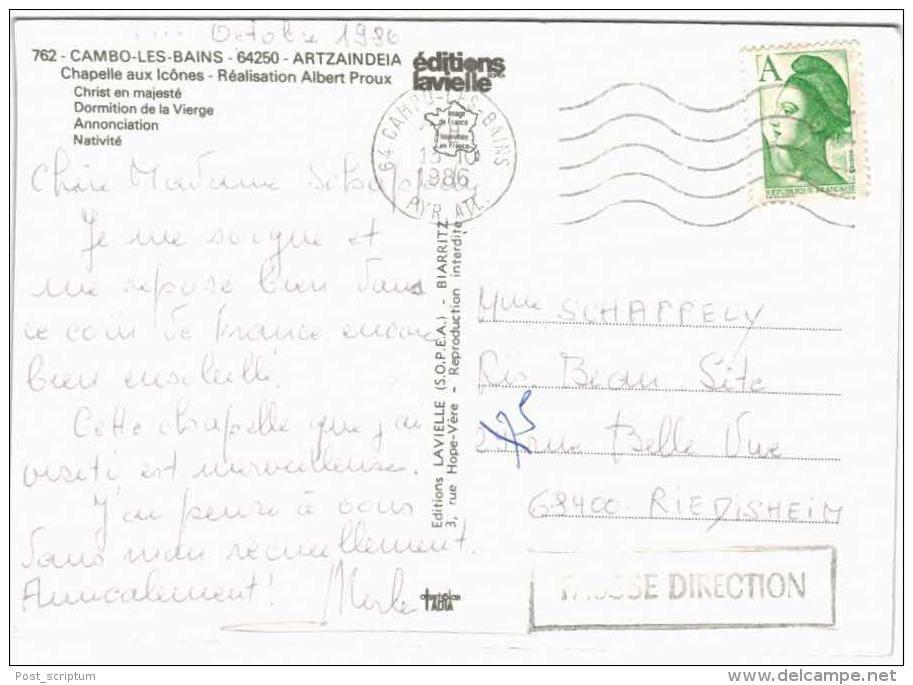 Octobre 1986
762 - CAMBO-LES-BAINS - 64250 - ARTZAINDEIA
Chapelle aux Icônes - Réalisation Albert Proux
Christ en majesté
Dormition de la Vierge
Annonciation
Nativité
éditions
lavielle
Image
de France
Imprimée
en France
64 CAMBO-LES-BAINS
13-10
1986
PYR. ATL.
A
RÉPUBLIQUE FRANÇAISE
Chère Madame Schappely
Je me soigne et
me repose bien dans
ce coin de France encore
bien ensoleillé.
Cette chapelle que j'ai
visité est merveilleuse.
J'ai pensé à vous
dans mon recueillement.
Amicalement!
Editions LAVIELLE (S.O.P.E.A.) - BIARRITZ
3, rue Hope-Vère - Reproduction interdite
Mme SCHAPPELY
Rés. Beau Site
rue Belle Vue
68400 RIEDISHEIM
FAUSSE DIRECTION
Post_scriptum
delcampe.net